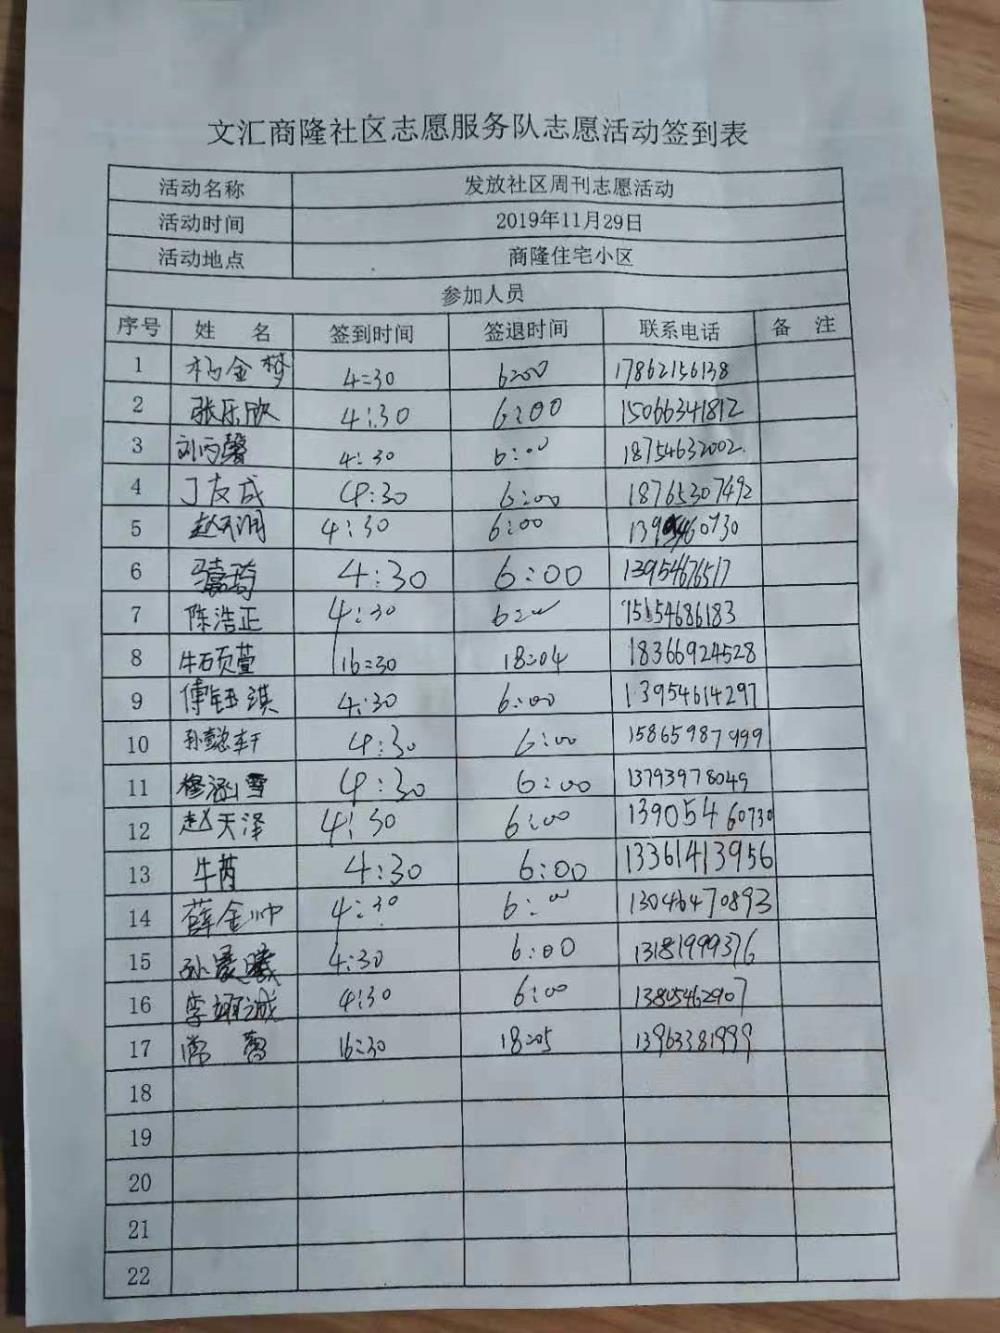 文汇商隆社区志愿服务队志愿活动签到表
活动名称 发放社区周刊志愿活动
活动时间 2019年11月29日
活动地点 商隆住宅小区
参加人员
序号 姓 名 签到时间 签退时间 联系电话 备 注
1 杨金梦 4:30 6:00 17862156138
2 张乐欣 4:30 6:00 15066341812
3 刘丙馨 4:30 6:00 18754632002
4 丁友成 4:30 6:00 18765307492
5 赵天润 4:30 6:00
6 4:30 6:00 13954676517
7 陈浩正 4:30 6:00 15154686183
8 牛硕萱 16:30 18:04 18366924528
9 傅钰淇 4:30 6:00 13954614297
10 孙懿轩 4:30 6:00 15865987999
11 穆涵雪 4:30 6:00 13793978049
12 赵天泽 4:30 6:00 13905460730
13 牛芮 4:30 6:00 13361413956
14 薛金帅 4:30 6:00 13046470893
15 4:30 6:00 13181999376
16 4:30 6:00 13805462907
17 常 16:30 18:05 13963381999
18
19
20
21
22